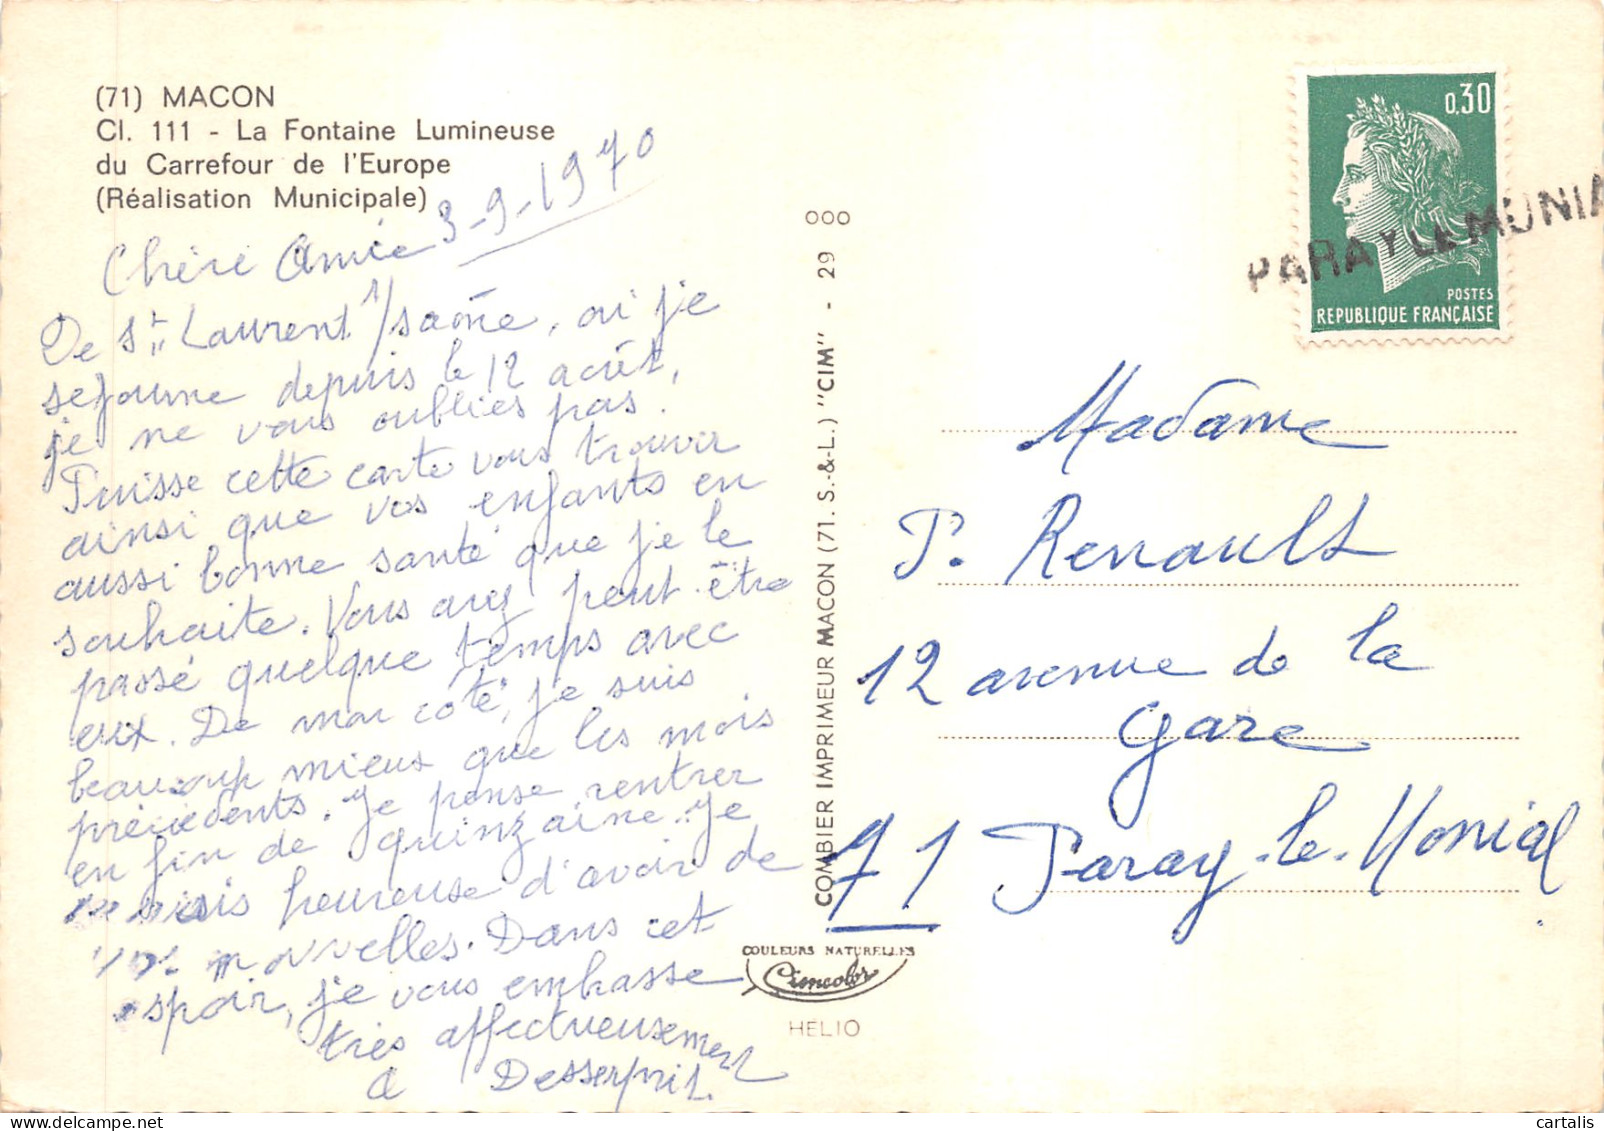 (71) MACON
Cl. 111 - La Fontaine Lumineuse
du Carrefour de l'Europe
(Réalisation Municipale)
3-9-1970
Chère Amie
De St Laurent s/saône, où je
sejourne depuis le 12 août,
je ne vous oublies pas.
Puisse cette carte vous trouver
ainsi que vos enfants en
aussi bonne santé que je le
souhaite. Vous avez peut-être
passé quelque temps avec
eux. De mon côté, je suis
beaucoup mieux que les mois
précédents. Je pense rentrer
en fin de quinzaine. Je
serais heureuse d'avoir de
vos nouvelles. Dans cet
espoir, je vous embrasse
très affectueusement
COMBIER IMPRIMEUR MACON (71. S.-&-L.) "CIM" - 29 000
COULEURS NATURELLES
Cimcolor
HELIO
0,30
POSTES
REPUBLIQUE FRANÇAISE
PARAY LE MONIA
Madame
P. Renault
12 avenue de la
Gare
71 Paray-le-Monial
cartalis